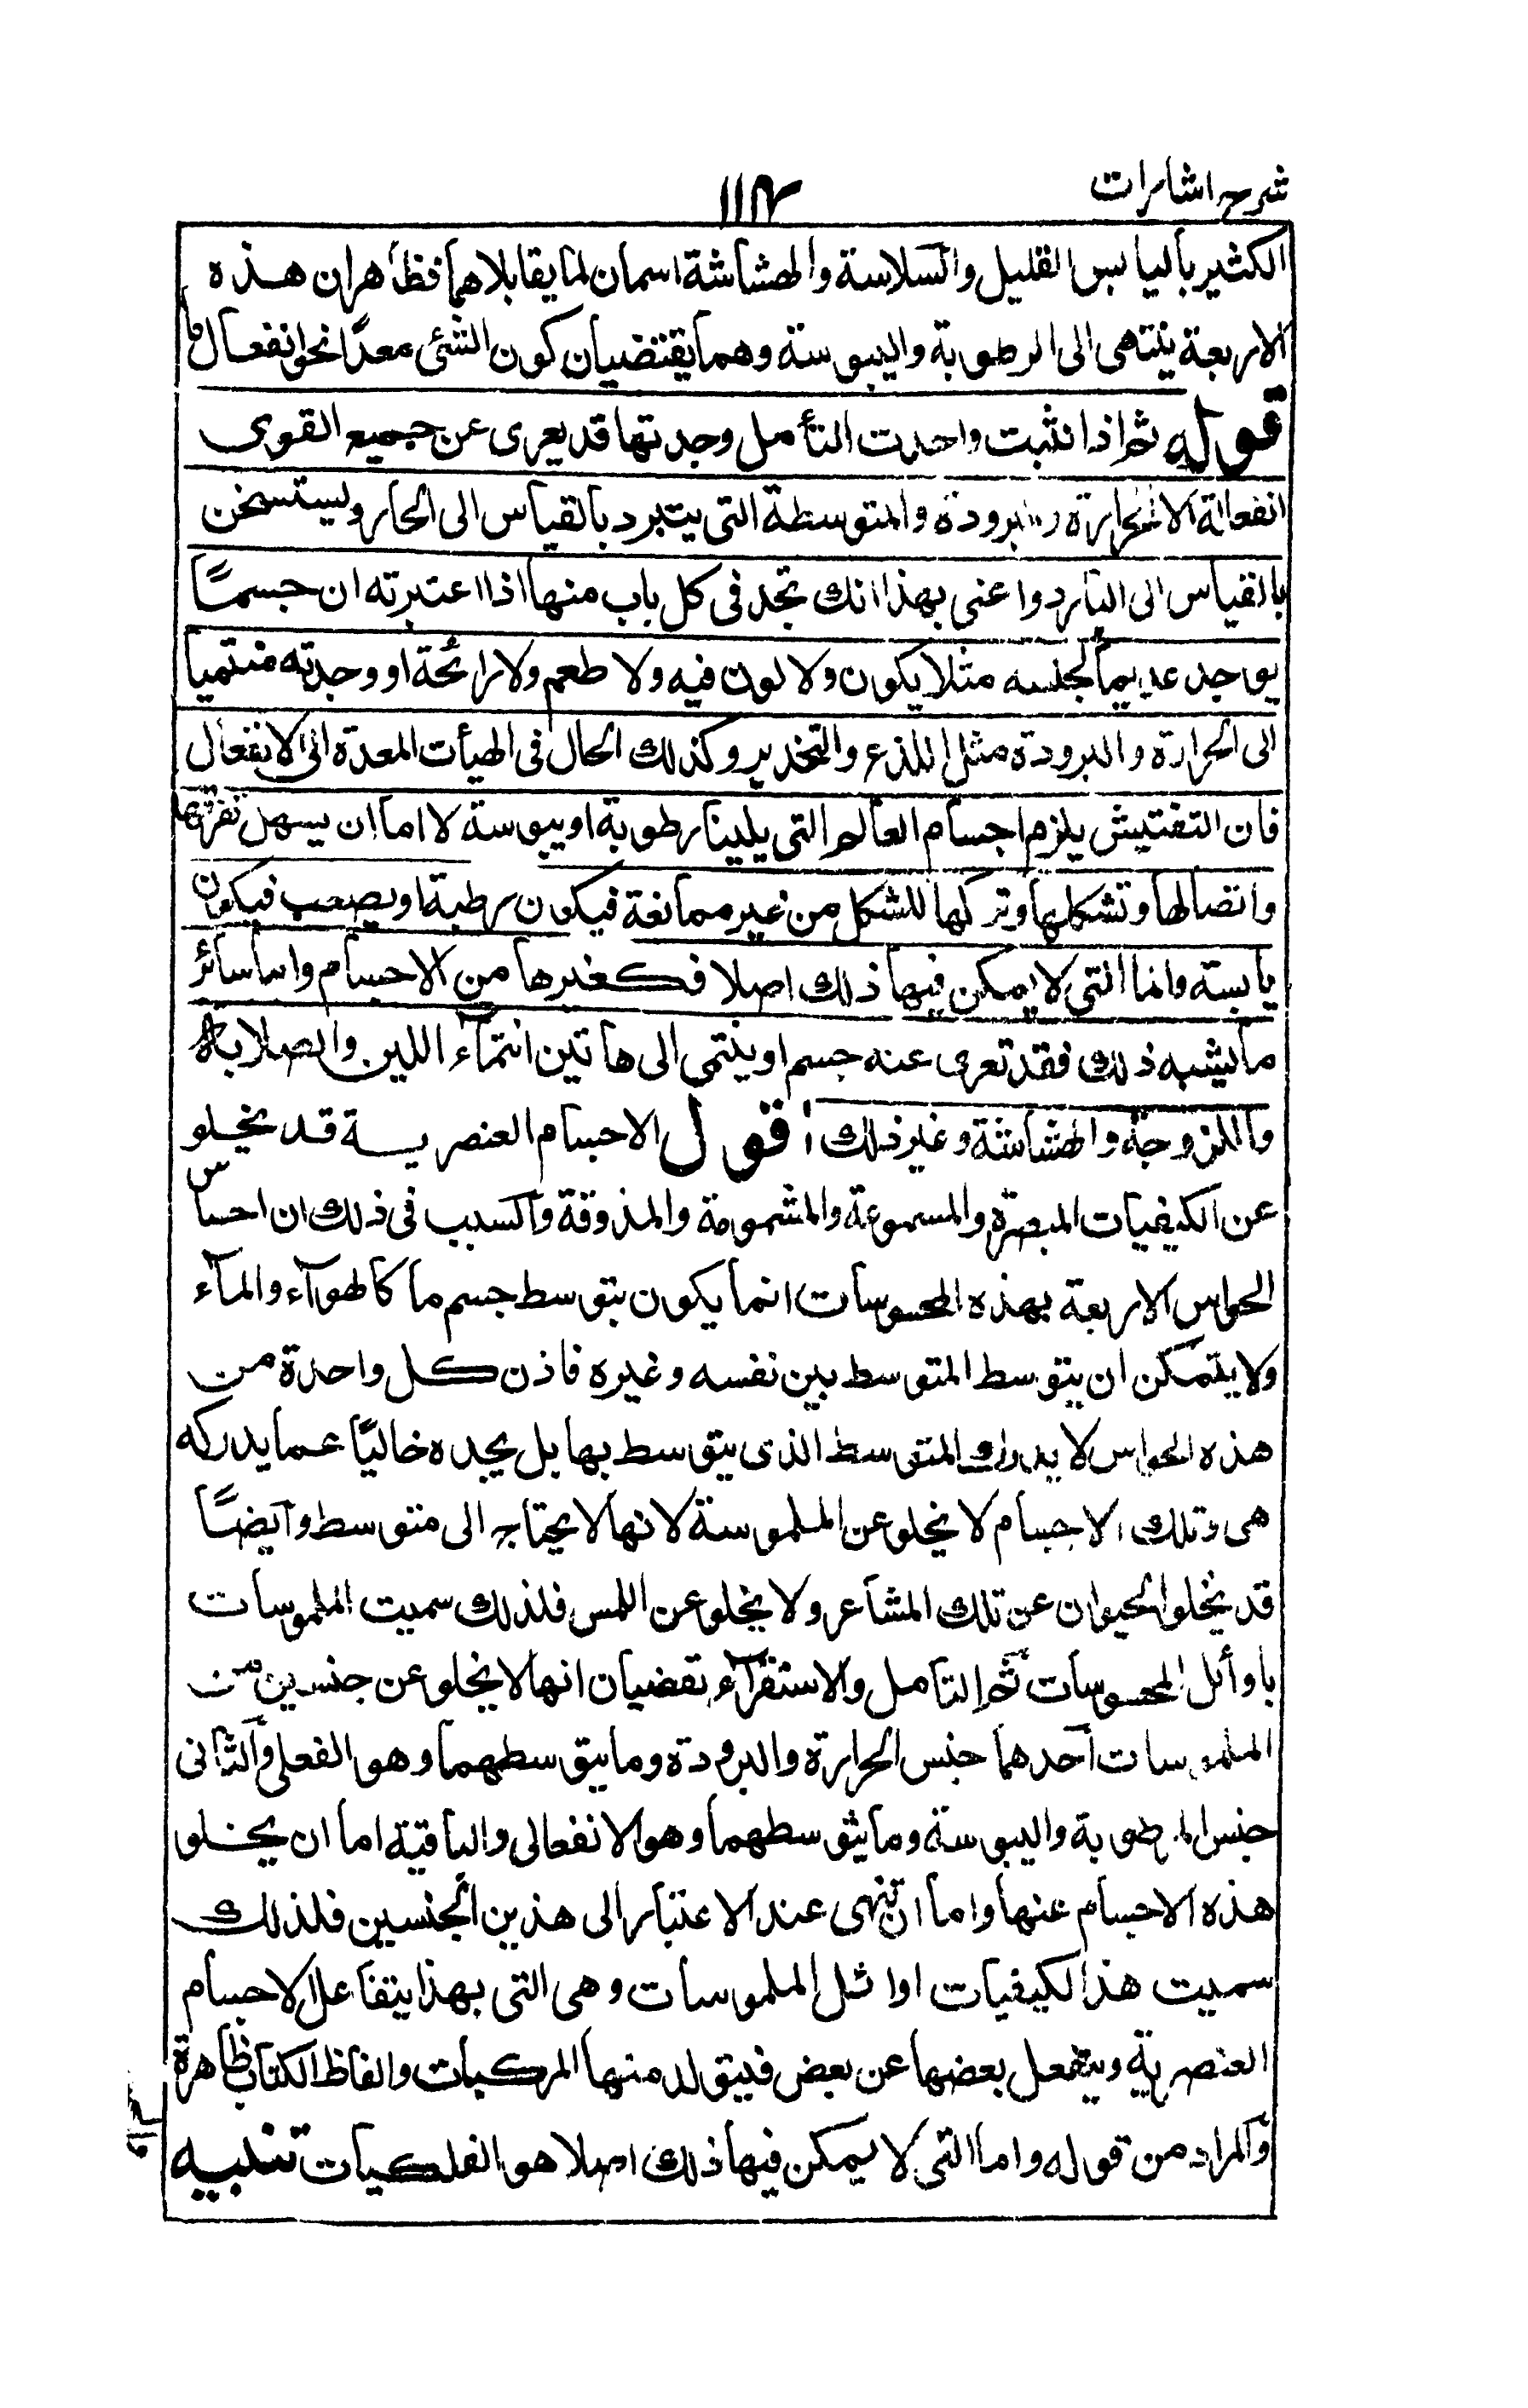 شرح اشارات
١١٢
الكثير باليابس القليل والسلاسة والهشاشة اسمان لما يقابلاهما فظاهر ان هذه
الاربعة ينتهى الى الرطوبة واليبوسة وهما يقتضيان كون الشئ معدًا نحو انفعال ما
قوله ثم اذا نشبت واجدت التأمل وجدتها قد يعرى عن جميع القوى
انفعالة الا الحرارة والبرودة والمتوسطة التى يتبرد بالقياس الى الحار ويستسخن
بالقياس الى البارد واعنى بهذا انك تجد فى كل باب منها اذا اعتبرته ان جسمًا
يوجد عديما لجنسه مثلا يكون ولا لون فيه ولا طعم ولا رائحة او وجدته منتميا
الى الحرارة والبرودة مثل اللذع والتخدير وكذلك الحال فى الهيأت المعدة الى الانفعال
فان التفتيش يلزم اجسام العالم التى يلينا رطوبة او يبوسة لا اما ان يسهل تفرقها
واتصالها وتشكلها وتركها للشكل من غير ممانعة فيكون رطبة او يصعب فيكون
يابسة واما التى لا يمكن فيها ذلك اصلا فكغيرها من الاجسام واما سائر
ما يشبه ذلك فقد تعرى عنه جسم او ينتمى الى هاتين انتمآء اللين والصلابة
واللزوجة والهشاشة وغير ذلك اقول الاجسام العنصرية قد يخلو
عن الكيفيات المبصرة والمسموعة والمشمومة والمذوقة والسبب فى ذلك ان احساس
الحواس الاربعة بهذه المحسوسات انما يكون بتوسط جسم ما كالهوآء والمآء
ولا يتمكن ان يتوسط المتوسط بين نفسه وغيره فاذن كل واحدة من
هذه الحواس لا يدرك المتوسط الذى يتوسط بها بل يجده خاليًا عما يدركه
هى وتلك الاجسام لا يخلو عن الملموسة لانها لا يحتاج الى متوسط وايضًا
قد يخلو الحيوان عن تلك المشاعر ولا يخلو عن اللمس فلذلك سميت الملموسات
باوأئل المحسوسات ثم التامل والاستقرآء تقضيان انها لا يخلو عن جنسين من
الملموسات احدهما جنس الحرارة والبرودة وما يتوسطهما وهو الفعلى والثانى
جنس الرطوبة واليبوسة وما يتوسطهما وهو الانفعالى والباقية اما ان يخلو
هذه الاجسام عنها واما ان تنتهى عند الاعتبار الى هذين الجنسين فلذلك
سميت هذا الكيفيات اوائل الملموسات وهى التى بهذا يتفاعل الاجسام
العنصرية وينفعل بعضها عن بعض فيتولد منها المركبات والفاظ الكتاب ظاهرة
والمراد من قوله واما التى لا يمكن فيها ذلك اصلا هو الفلكيات تنبيه